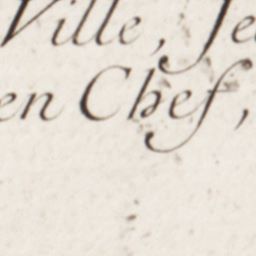 Ville, Je
en Chef,